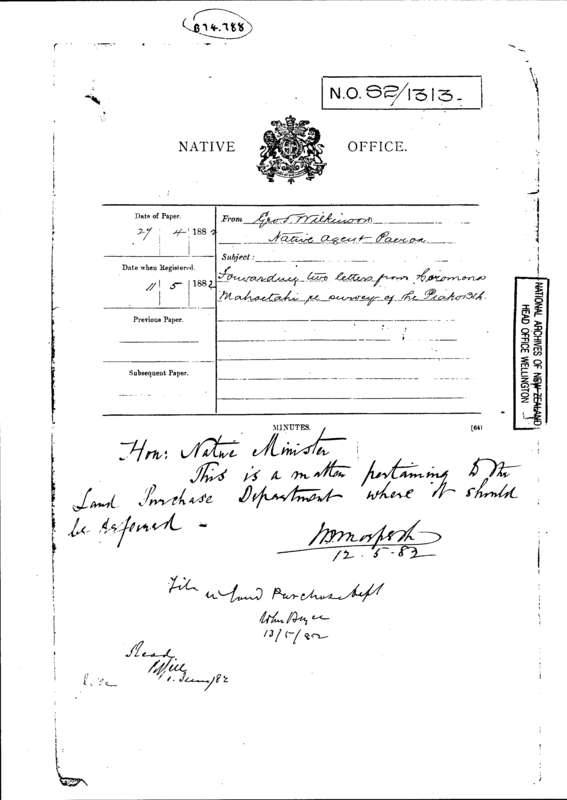 B74.788
N.O. 82/1313.
NATIVE OFFICE.
Date of Paper.
27 4 1882
Date when Registered.
11 5 1882
Previous Paper.
Subsequent Paper.
From Geo. T. Wilkinson
Native Agent Paeroa
Subject:
Forwarding two letters from
Mahoetahi re survey of the Piako Blk.
NATIONAL ARCHIVES OF NEW ZEALAND
HEAD OFFICE WELLINGTON
MINUTES.
[64]
Hon: Native Minister
This is a matter pertaining to the
Land Purchase Department where it should
be referred -
12.5.82
File in Land Purchase Dept
John Bryce
13/5/82
Read
1. June/82